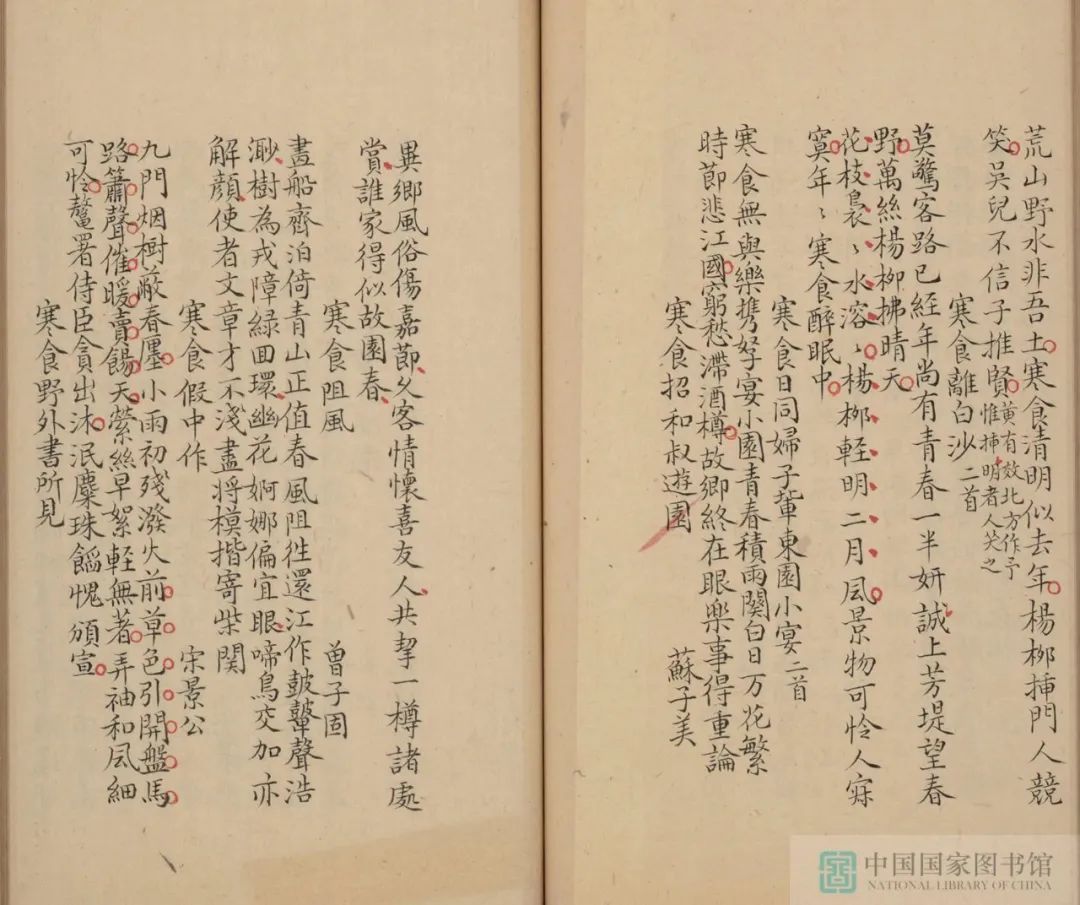 荒山野水非吾土寒食清明似去年楊柳揷門人競
笑吳兒不信子推賢黃有效北方作予
惟揷明者人笑之
寒食離白沙二首
莫驚客路已經年尚有青春一半妍誠上芳堤望春
野萬絲楊柳拂晴天
花枝裊〻水溶〻楊柳軽明二月風景物可怜人寂
寞年〻寒食醉眠中
寒食日同婦子輩東園小宴二首
寒食無與樂携孥宴小園青春積雨闋白日万花繁
時節悲江國窮愁滯酒樽故鄉終在眼樂事得重論
寒食招和叔遊園 蘇子美
異鄉風俗傷嘉節久客情懷喜友人共挈一樽諸處
賞誰家得似故園春
寒食阻風 曾子固
畫船齊泊倚青山正值春風阻徃還江作皷鼙聲浩
渺樹為戎障緑回環幽花婀娜偏宜眼啼鳥交加亦
解顏使者文章才不淺盡將模揩寄柴関
寒食假中作 宋景公
九門烟樹蔽春廛小雨初殘潑火前草色引開盤馬
路簫聲催暖賣餳天縈絲早絮軽無著弄袖和風細
可怜鼇署侍臣貪出沐泯麋珠饀愧頒宣
寒食野外書所見
中国国家图书馆
NATIONAL LIBRARY OF CHINA